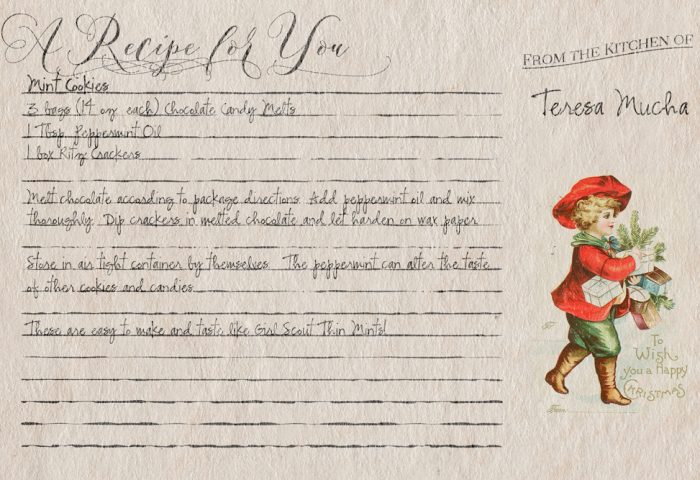 A Recipe for You
FROM THE KITCHEN OF
Teresa Mucha
Mint Cookies
3 bags (14 oz each) Chocolate Candy Melts
1 Tbsp Peppermint Oil
1 box Ritz Crackers
Melt chocolate according to package directions. Add peppermint oil and mix
thoroughly. Dip crackers in melted chocolate and let harden on wax paper.
Store in air tight container by themselves. The peppermint can alter the taste
of other cookies and candies.
These are easy to make and taste like Girl Scout Thin Mints!
To
Wish
you a Happy
CHRISTMAS
From